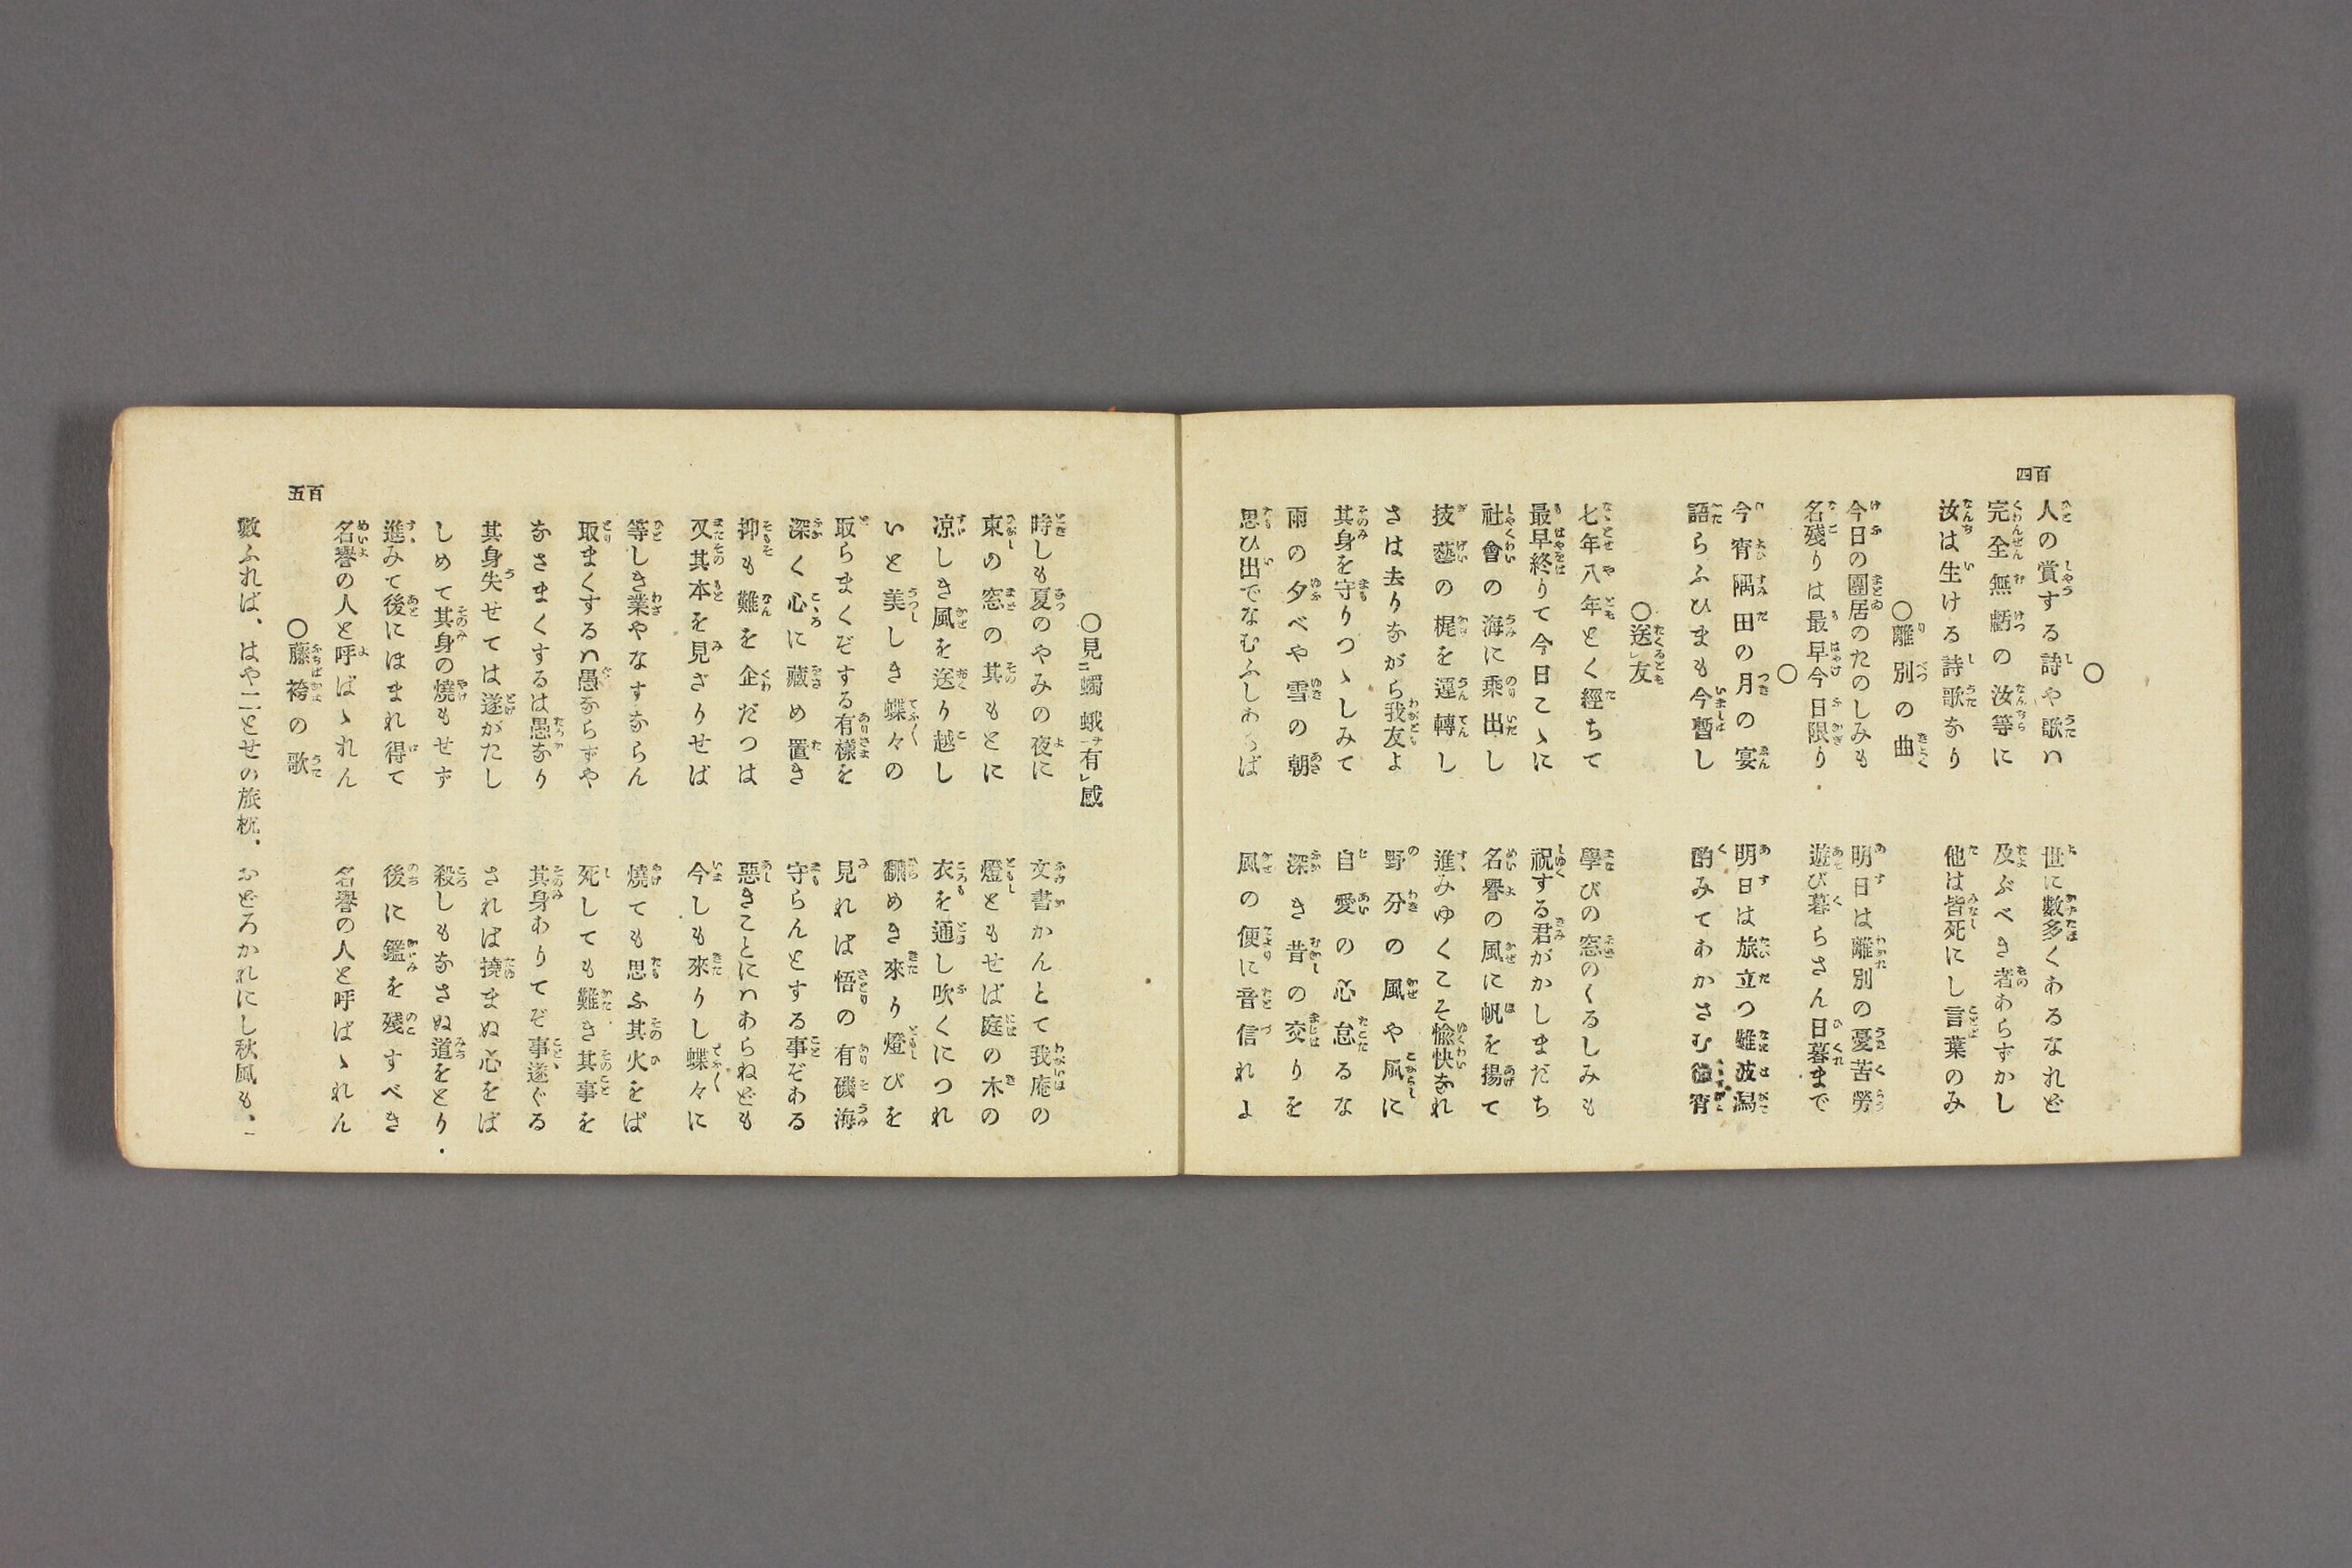 百四
○
人の賞する詩や歌ハ　世に數多くあるなれど
完全無虧の汝等に　及ぶべき者あらずかし
汝は生ける詩歌なり　他は皆死にし言葉のみ
○離別の曲
今日の團居のたのしみも　明日は離別の憂苦勞
名殘りは最早今日限り　遊び暮らさん日暮まで
○
今宵隅田の月の宴　明日は旅立つ難波潟
語らふひまも今暫し　酌みてあかさむ 宵
○送レ友
七年八年とく經ちて　學びの窓のくるしみも
最早終りて今日こゝに　祝する君がかしまだち
社會の海に乘出し　名譽の風に帆を揚げて
技藝の梶を運轉し　進みゆくこそ愉快なれ
さは去りながら我友よ　野分の風や凩に
其身を守りつゝしみて　自愛の心怠るな
雨の夕べや雪の朝　深き昔の交りを
思ひ出でなむふしあらば　風の便に音信れよ
百五
○見ニ蠋蛾ヲ一有レ感
時しも夏のやみの夜に　文書かんとて我庵の
東の窓の其もとに　燈ともせば庭の木の
凉しき風を送り越し　衣を通し吹くにつれ
いと美しき蝶々の　飜めき來り燈びを
取らまくぞする有樣を　見れば悟の有磯海
深く心に藏め置き　守らんとする事ぞある
抑も難を企だつは　惡きことにハあらねども
又其本を見ざりせば　今しも來りし蝶々に
等しき業やなすならん　燒ても思ふ其火をば
取まくするハ愚ならずや　死しても難き其事を
なさまくするは愚なり　其身ありてぞ事遂ぐる
其身失せては遂がたし　されば撓まぬ心をば
しめて其身の燒もせず　殺しもなさぬ道をとり
進みて後にほまれ得て　後に鑑を殘すべき
名譽の人と呼ばゝれん　名譽の人と呼ばゝれん
○藤袴の歌
數ふれば、はや二とせの旅枕、おどろかれにし秋風も、